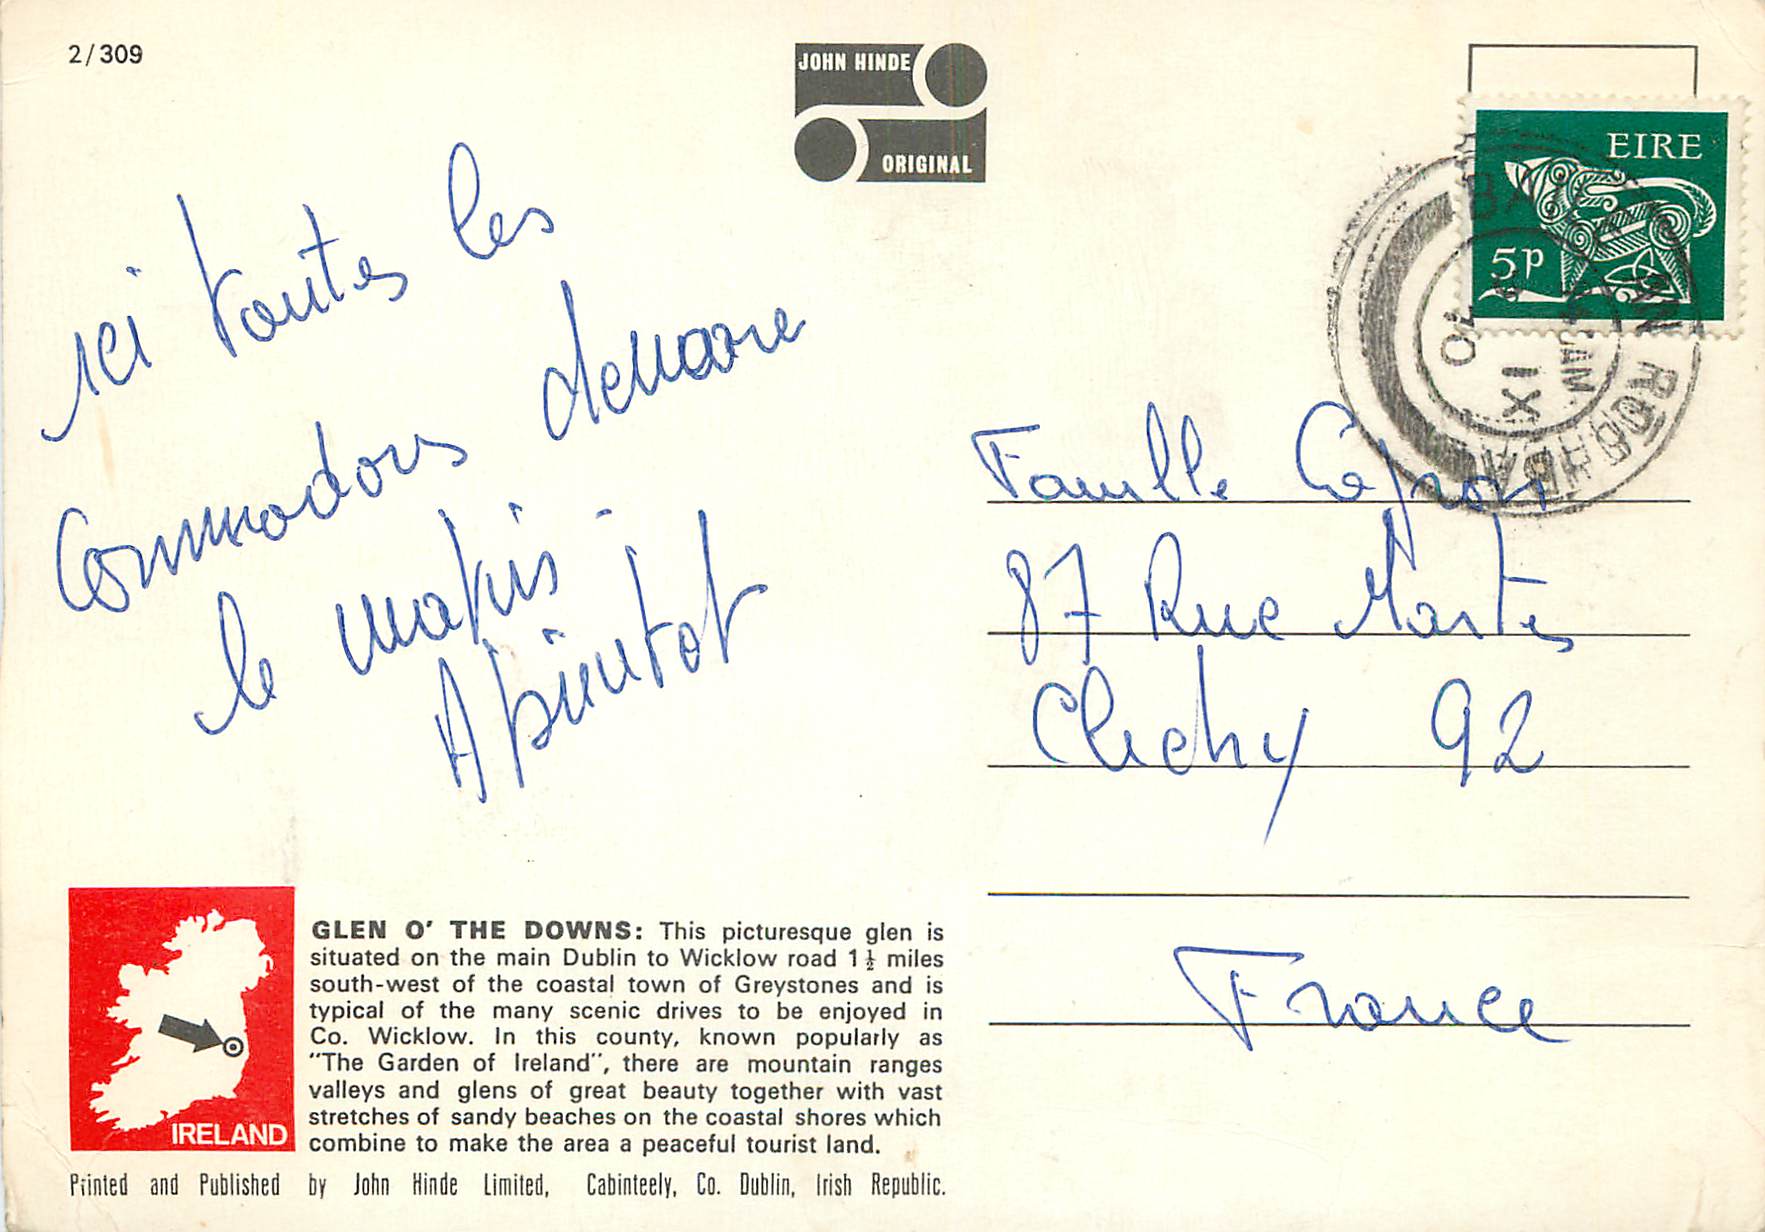 2/309
JOHN HINDE
ORIGINAL
EIRE
5p
IX
ici toutes les
Commodons
le
A bientot
Famille
87 Rue
Clichy 92
France
GLEN O' THE DOWNS: This picturesque glen is
situated on the main Dublin to Wicklow road 1½ miles
south-west of the coastal town of Greystones and is
typical of the many scenic drives to be enjoyed in
Co. Wicklow. In this county, known popularly as
"The Garden of Ireland", there are mountain ranges
valleys and glens of great beauty together with vast
stretches of sandy beaches on the coastal shores which
combine to make the area a peaceful tourist land.
IRELAND
Printed and Published by John Hinde Limited, Cabinteely, Co. Dublin, Irish Republic.